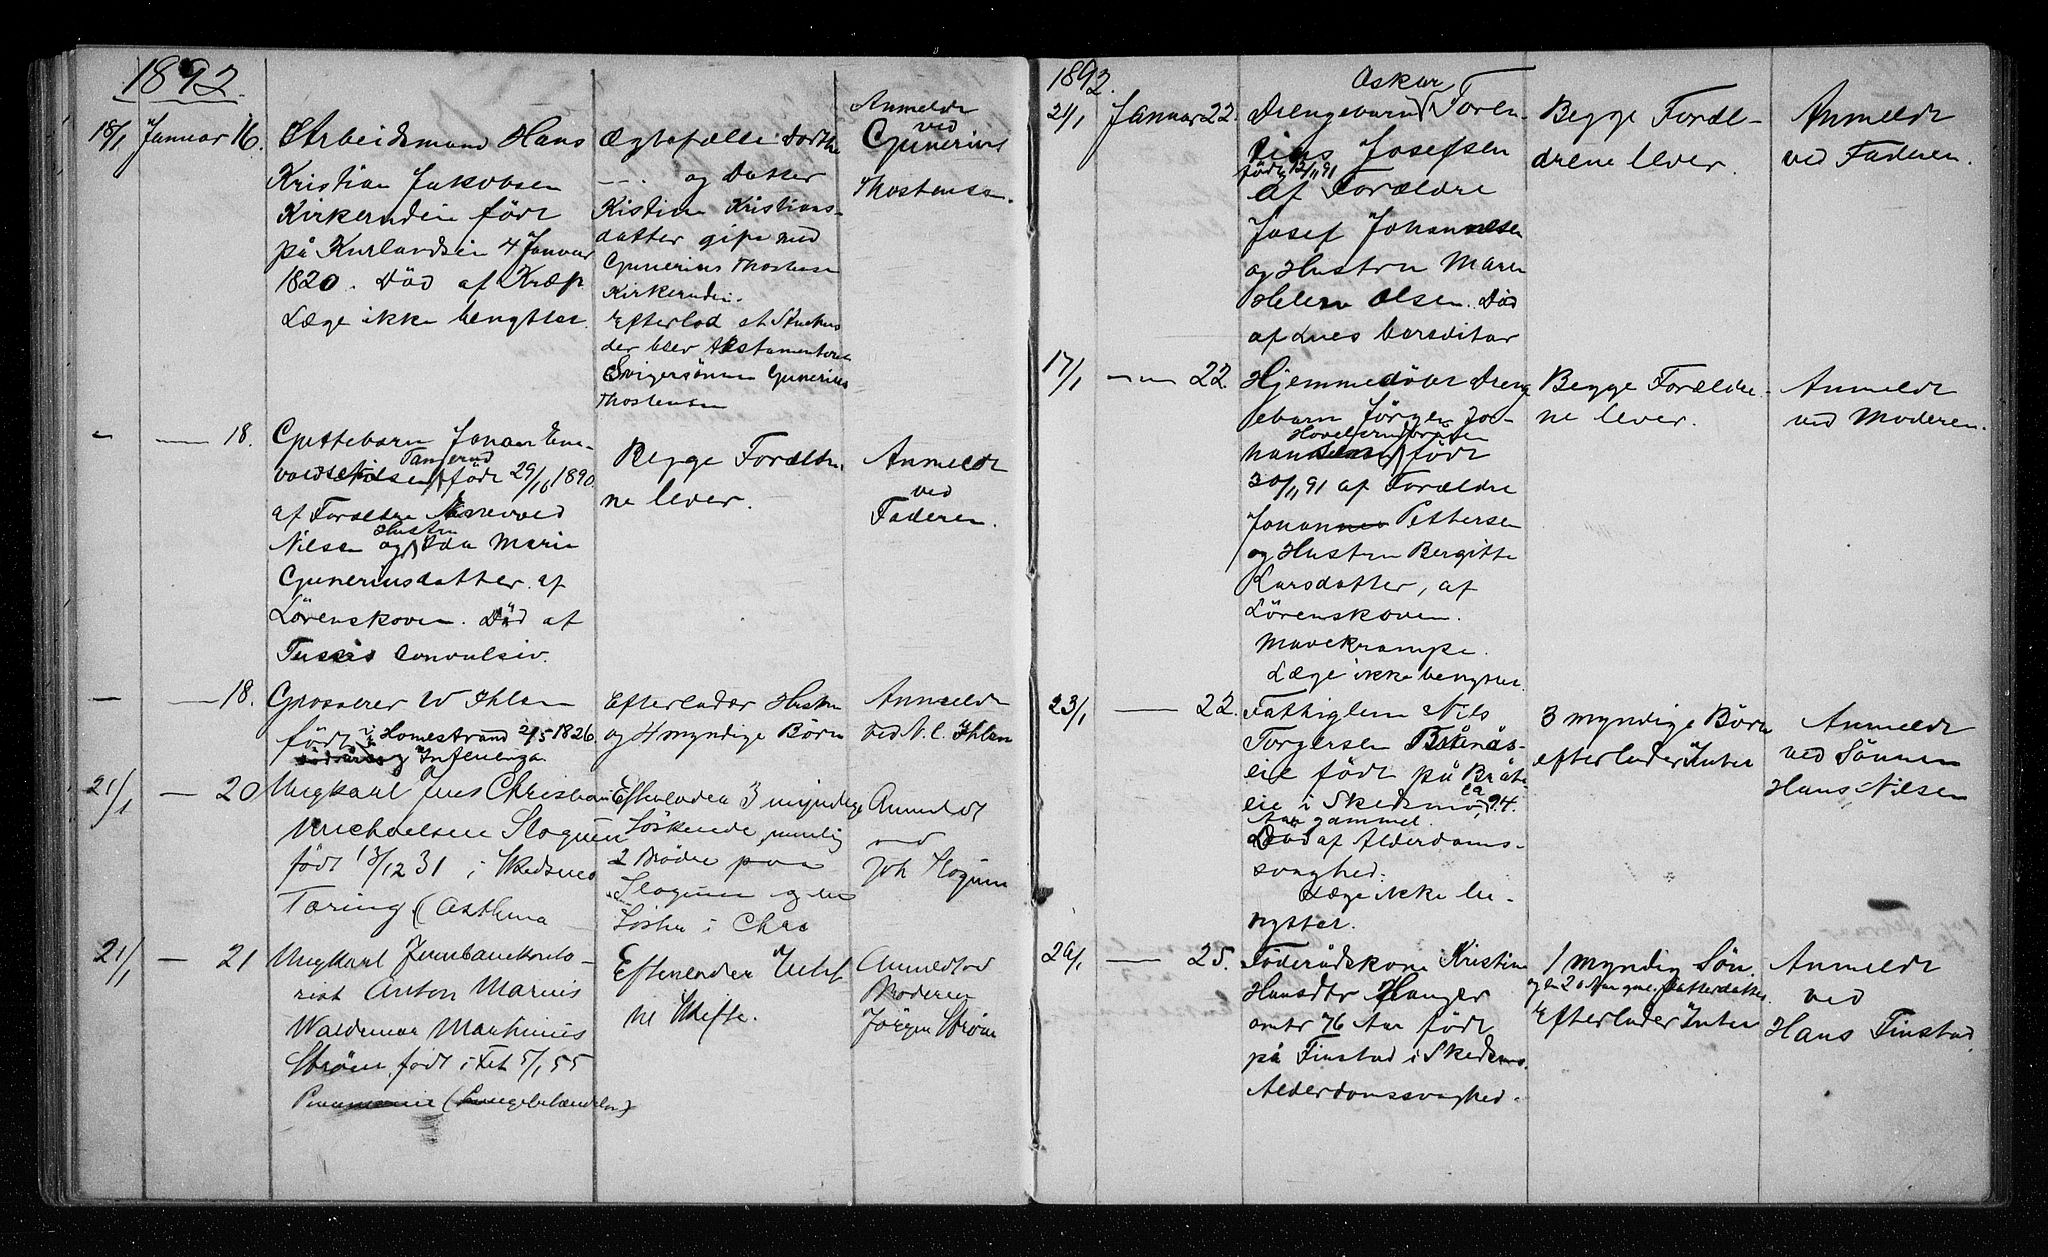 1892.
18/1 Januar 16. Arbeidsmand Hans
Kristian Jakobsen
Kirkerudeie født
på Kurlandseie 4 Januar
1820. Død af Kræp.
Læge ikke bengttet.
Ægtefælle: Dorthe
og Datter
Kistine Kristians-
datter gift med
Gunerius Thostensen
Kirkerudei.
Efterlod et
der blev testamenteret
Svigersønnen Gunerius
Thostensen
Anmeldt
ved
Gunerius
Thostensen.
- — 18. Guttebarn Johan Ene-
valdsen Nilsen Tangerud født 29/10 1890.
af Forældre Enevald
Nilsen og Hustru Ida Marie
Guneriusdatter af
Lörenskoven. Död af
Tussis convulsiv.
Begge Forældre-
ne lever.
Anmeldt
ved
Faderen.
- — 18. Grosserer W Ihlen
født i Homestrand 2/5 1826.
Influenza
Efterlader Hustru
og 4 myndige Börn
Anmeldt
ved N. C. Ihlen
21/1 — 20 Ungkarl Jens Christian
Michaelsen Slogum
født 13/12 31 i Skedsmo
Tæring (Asthma
Efterlader 3 myndige
Söskende, nemlig
2 Brödre paa
Slogum og en
Söster i Chra
Anmeldt
ved
Joh Slogum
21/1 — 21 Ungkarl Jernbanekonto-
rist Anton Marius
Waldemar Martinius
Strøm, født i Fet 5/1 55
Efterlader Intet
til Skifte.
Anmeldt
Broderen
Jörgen Strøm
1892.
21/1 Januar 22. Drengebarn Oskar Toren-
Josefsen
født 12/11 91
af Forældre
Josef Johannesen
og Hustru Maren
Helene Olsen. Død
af Lues
Begge Foræl-
drene lever.
Anmeldt
ved Faderen.
17/1 —„— 22. Hjemmedöbt Dreng
ebarn Jörgen Jo-
hansen født
30/11 91 af Forældre
Johan Pettersen
og Hustru Bergitte
Larsdatter, af
Lörenskoven.
Mavekrampe.
Læge ikke bengttet.
Begge Forældre-
ne lever.
Anmeldt
ved Moderen.
23/1 — 22. Fattiglem Nils
Torgersen Brånås-
eie født på Bråte-
eie i Skedsmo, ca 94.
Aar gammel.
Död af Alderdoms-
svaghed.
Læge ikke be-
nyttet.
3 myndige Börn
efterlader Intet
Anmeldt
ved Sönnen
Hans Nilsen
26/1 — 25. Föderådskone Kristine
Hansdtr Hanger
omtr 76 Aar født
på Finstad i Skedsmo.
Alderdomssvaghed.
1 myndig Sön.
og en 20 Aar gml. Datterdatter.
Efterlader Intet
Anmeldt
ved
Hans Finstad.